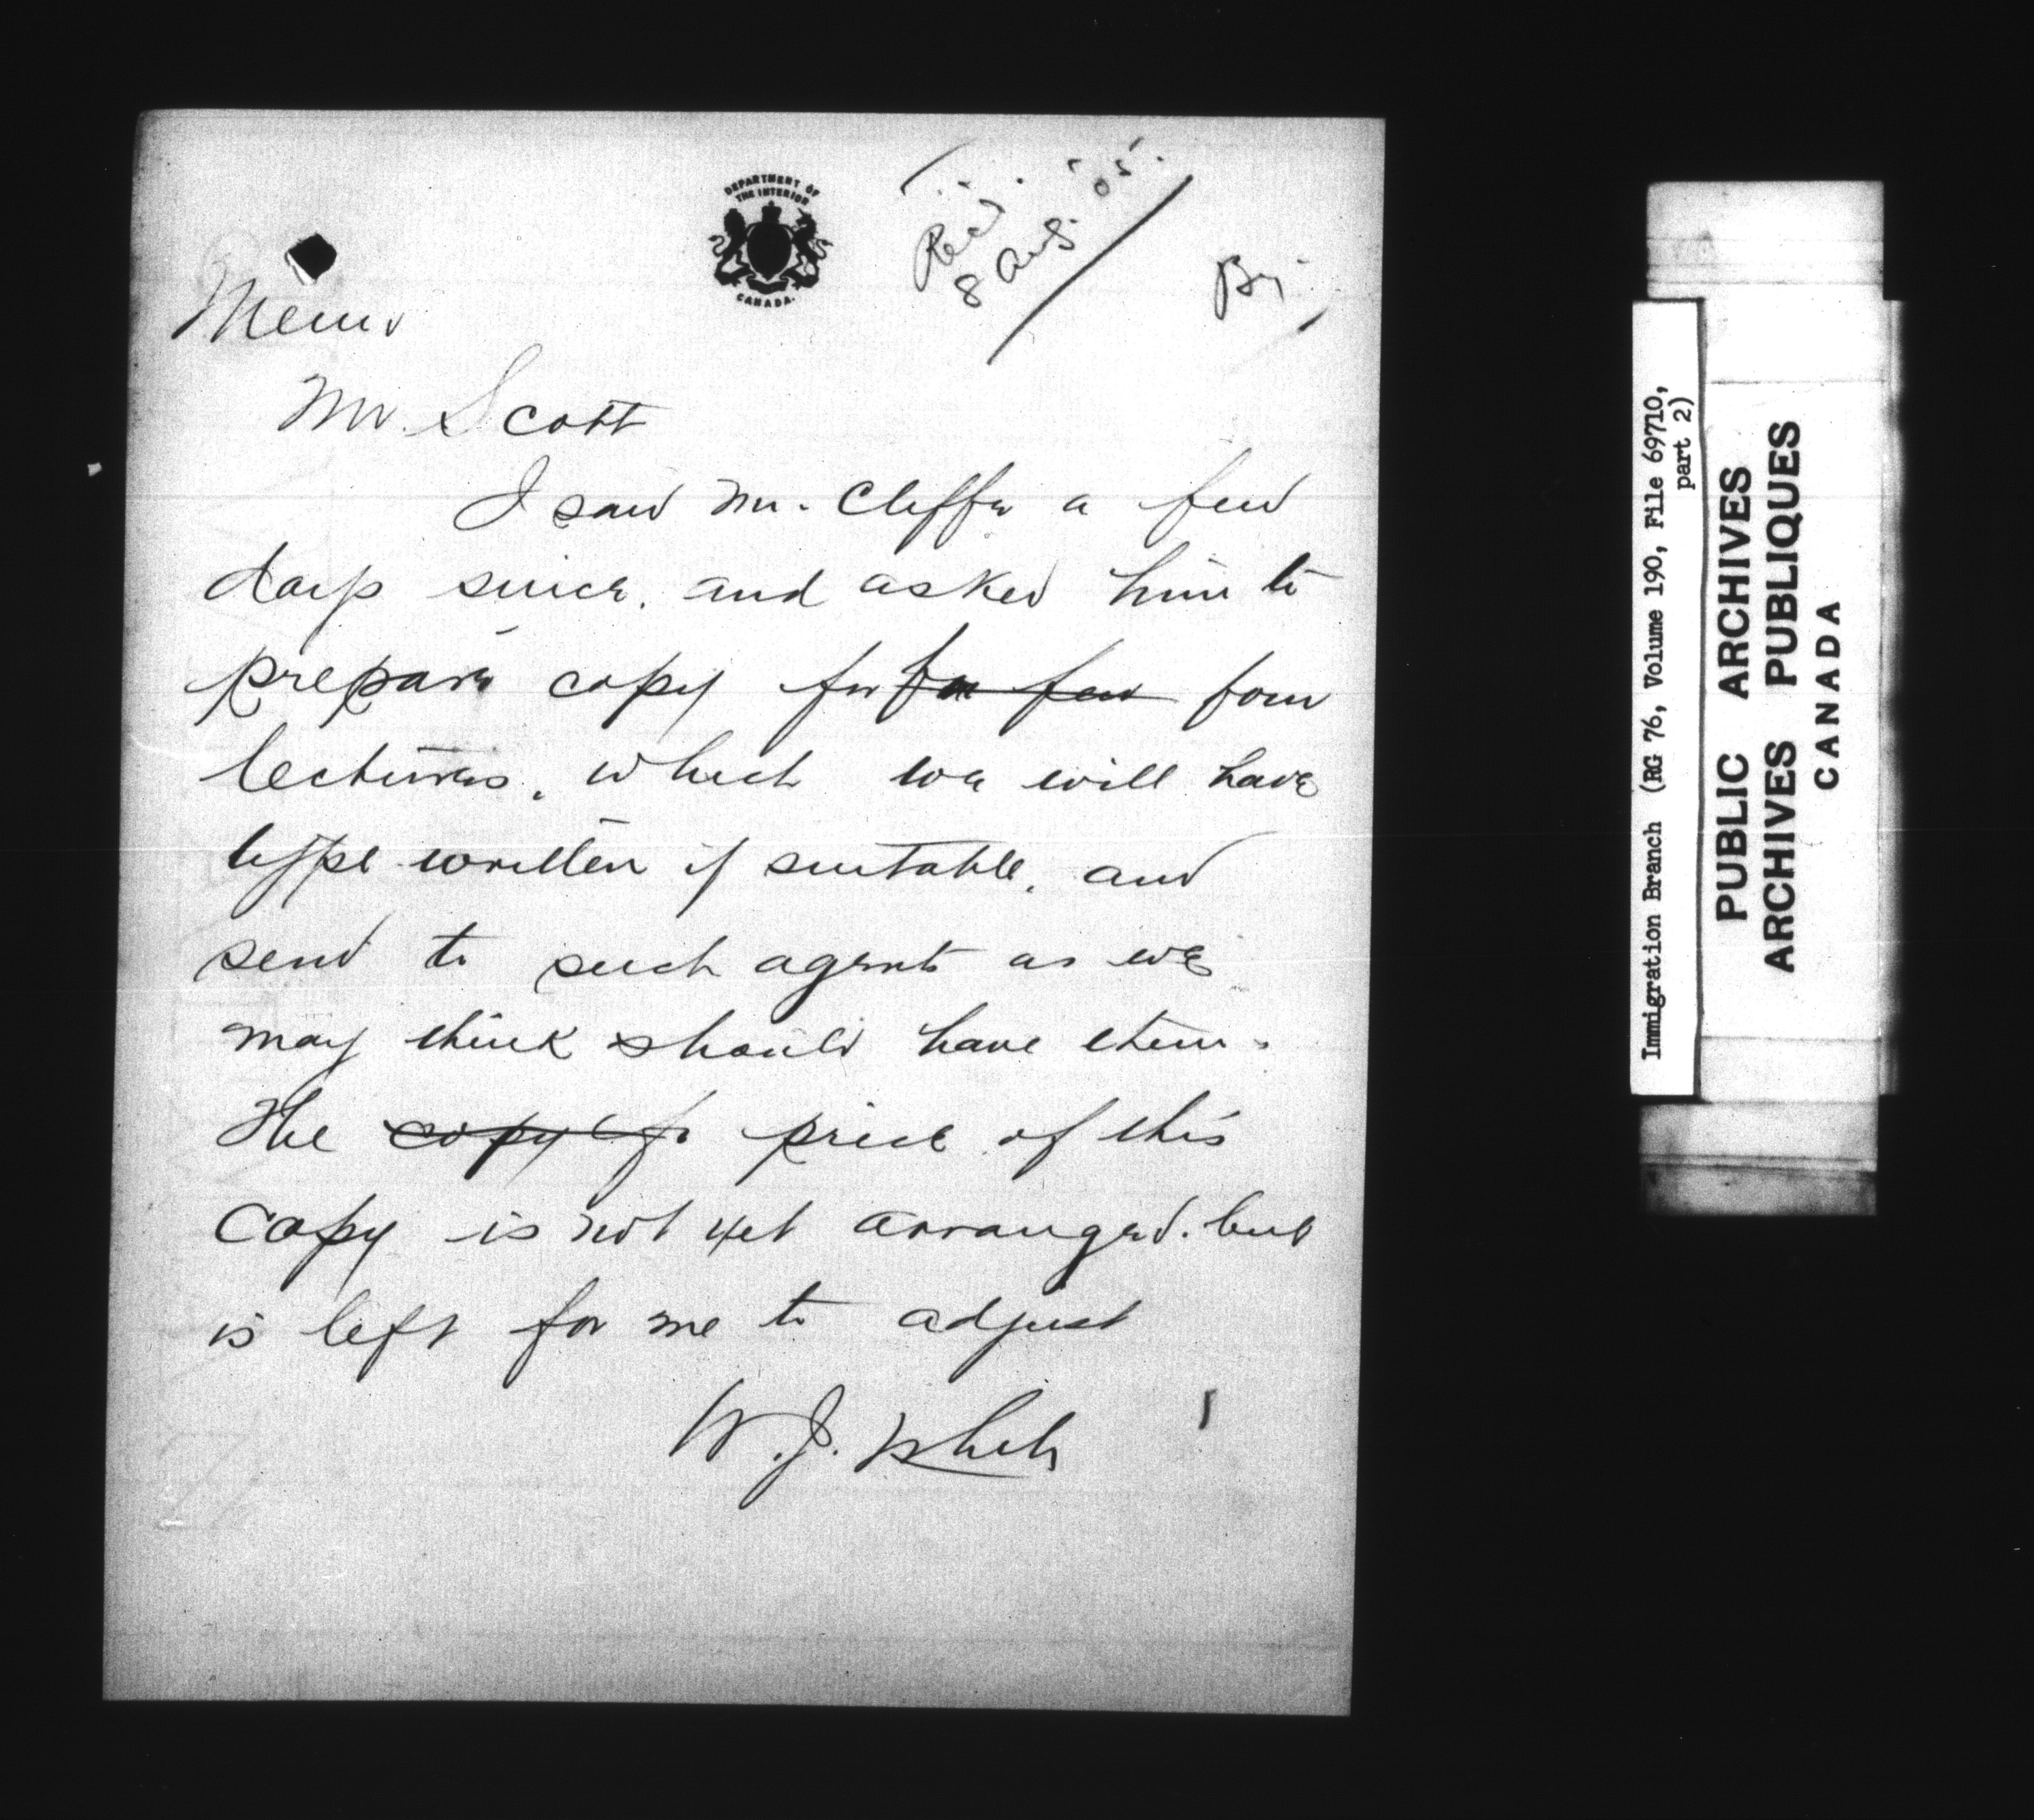 DEPARTMENT OF
THE INTERIOR
CANADA.
Rec'd.
8 Aug. '05.
Memo
Mr. Scott
I saw Mr. Cliffe a few
days since, and asked him to
prepare copy for for few four
lectures, which we will have
type written if suitable, and
send to such agents as we
may think should have them.
The copy of price of this
copy is not yet arranged. but
is left for me to adjust
W. J. White
Immigration Branch (RG 76, Volume 190, File 69710,
part 2)
PUBLIC ARCHIVES
ARCHIVES PUBLIQUES
CANADA